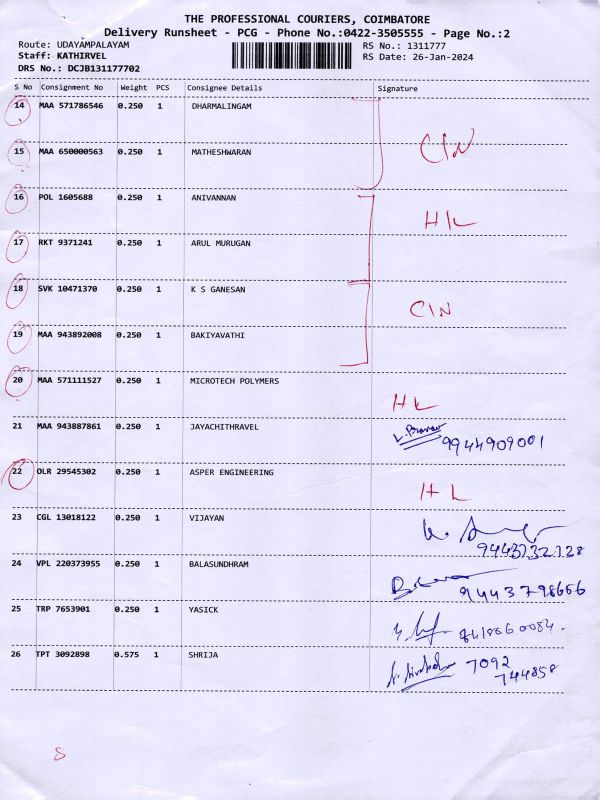 THE PROFESSIONAL COURIERS, COIMBATORE
Delivery Runsheet - PCG - Phone No.:0422-3505555 - Page No.:2
Route: UDAYAMPALAYAM
RS No.: 1311777
Staff: KATHIRVEL
RS Date: 26-Jan-2024
DRS No.: DCJB131177702
S No Consignment No Weight PCS Consignee Details Signature
14 MAA 571786546 0.250 1 DHARMALINGAM
CIN
15 MAA 650000563 0.250 1 MATHESHWARAN
16 POL 1605688 0.250 1 ANIVANNAN
HL
17 RKT 9371241 0.250 1 ARUL MURUGAN
18 SVK 10471370 0.250 1 K S GANESAN
CIN
19 MAA 943892008 0.250 1 BAKIYAVATHI
20 MAA 571111527 0.250 1 MICROTECH POLYMERS
HL
21 MAA 943887861 0.250 1 JAYACHITHRAVEL
9944909001
22 OLR 29545302 0.250 1 ASPER ENGINEERING
HL
23 CGL 13018122 0.250 1 VIJAYAN
24 VPL 220373955 0.250 1 BALASUNDHRAM
9443798656
25 TRP 7653901 0.250 1 YASICK
26 TPT 3092898 0.575 1 SHRIJA
7092
744858
8